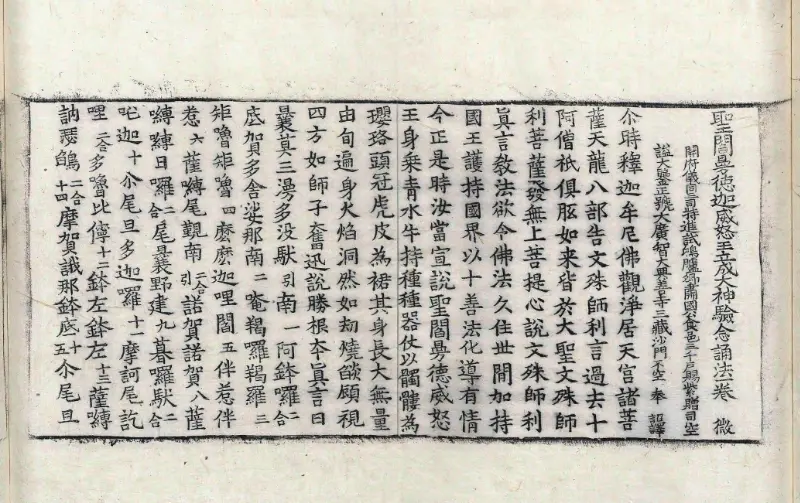 聖閻曼德迦威怒王立成大神驗念誦法卷 微
開府儀同三司特進試鴻臚卿肅國公食邑三千戶賜紫贈司空
謚大鑒正號大廣智大興善寺三藏沙門不空 奉 詔譯
尒時釋迦牟尼佛觀淨居天宮諸菩
薩天龍八部告文殊師利言過去十
阿僧祇俱胝如來皆於大聖文殊師
利菩薩發無上菩提心說文殊師利
眞言教法欲令佛法久住世間加持
國王護持國界以十善法化導有情
今正是時汝當宣說聖閻曼德威怒
王身乗青水牛持種種器仗以髑髏為
瓔珞頭冠虎皮為裙其身長大無量
由旬遍身火焰洞然如劫燒焰顧視
四方如師子奮迅說勝根本眞言曰
曩莫三滿多沒馱引南一阿鉢囉二合
底賀多舍娑那南二唵羯囉羯囉三
矩嚕矩嚕四麽麽迦哩閻五伴惹伴
惹六薩嚩尾覲南二合引諾賀諾賀八薩
嚩嚩日囉二合尾曩野建九暮囉馱二合
吒迦十尒尾旦多迦囉十一摩訶尾訖
哩二合多嚕比儜十二鉢左鉢左十三薩嚩
訥瑟鴿二合十四摩賀誐那鉢底十五尒尾旦